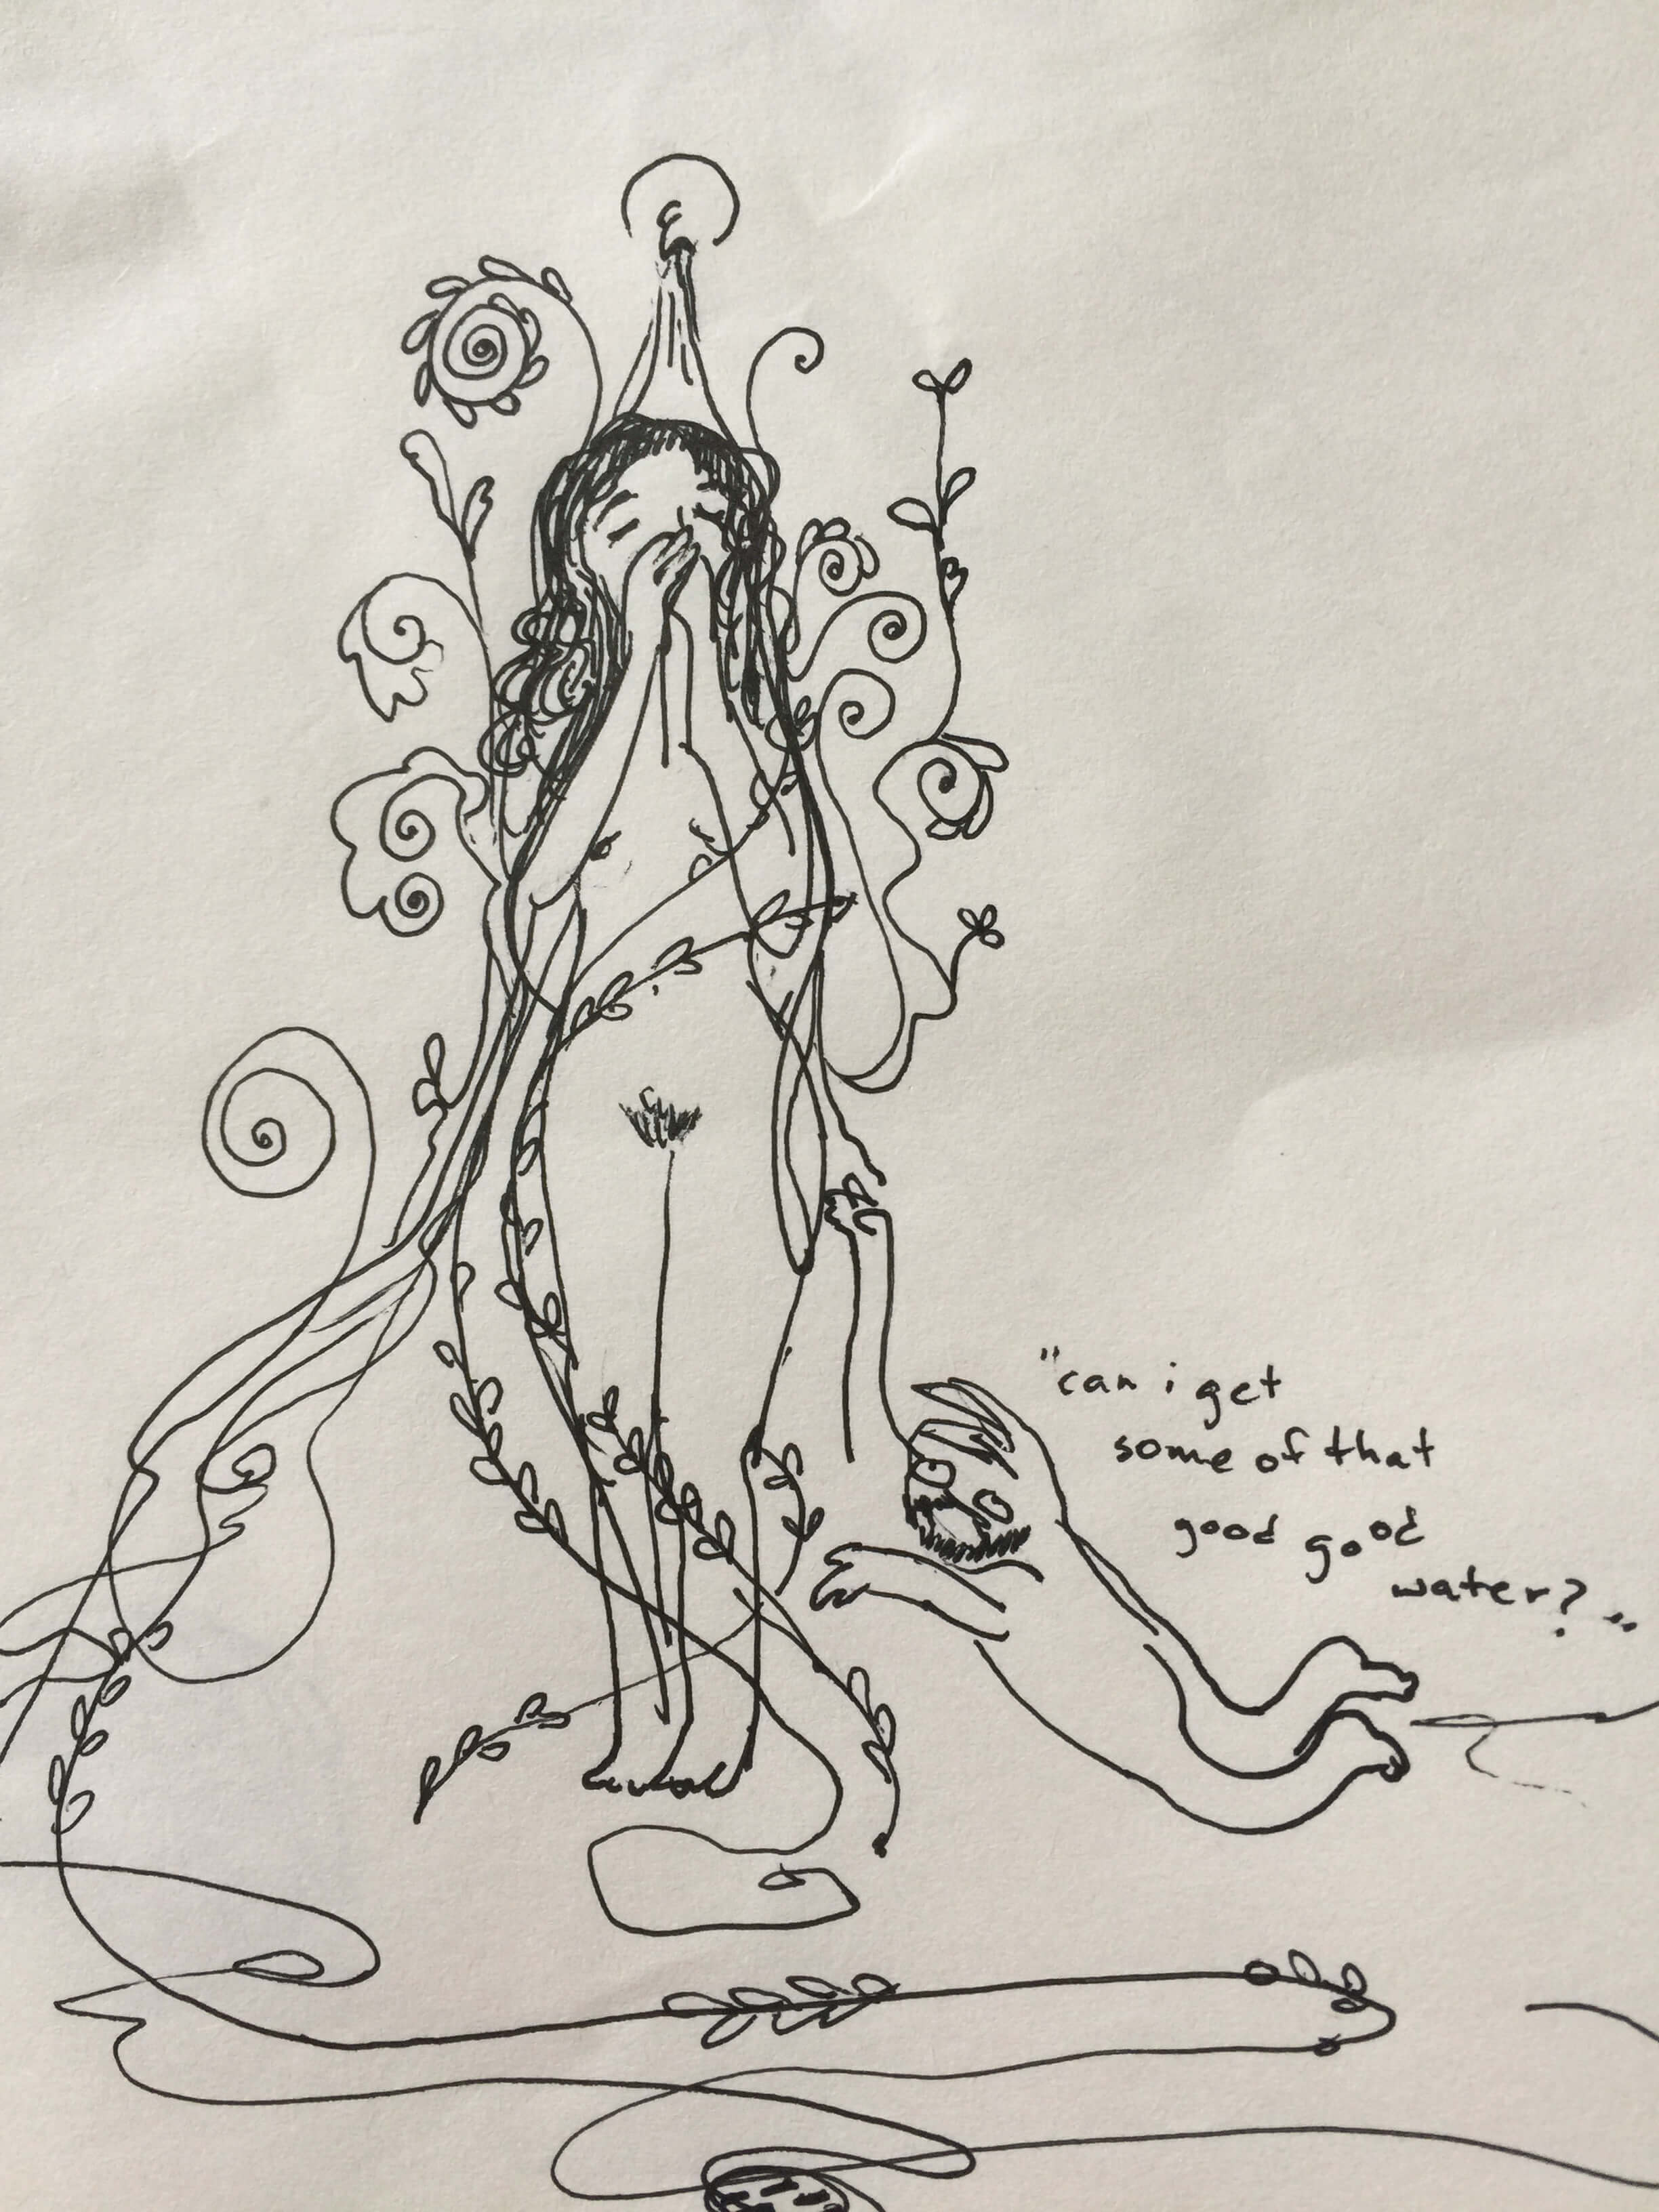 "can i get
some of that
good good
water? "